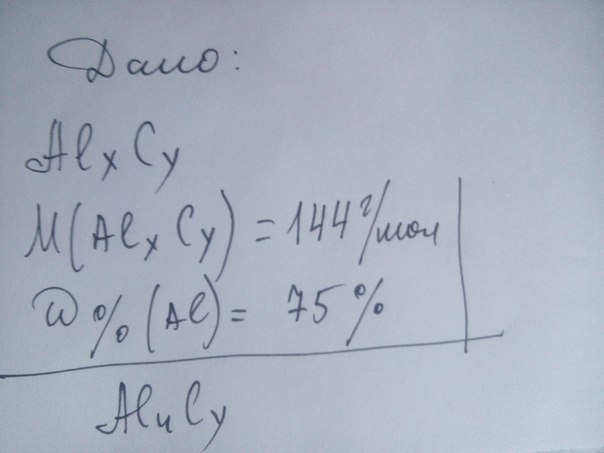 Дано:
AlxCy
M(AlxCy) = 144 г/мол
ω%(Al) = 75%
AlxCy